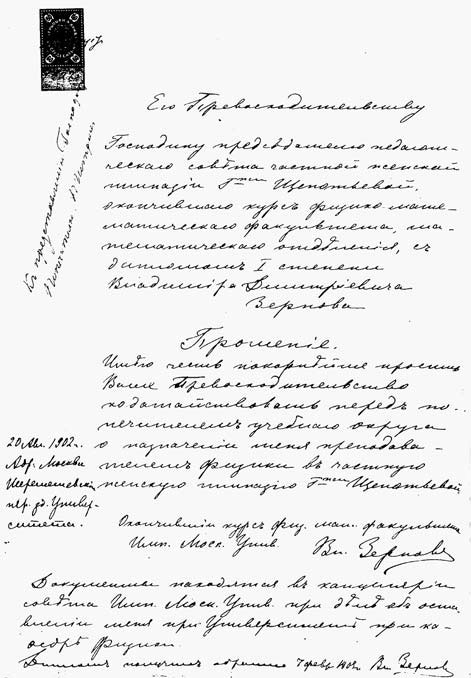 Его Превосходительству
Господину председателю педагоги-
ческаго совѣта частной женской
гимназіи Г-жи Щепотьевой,
окончившаго курсъ физико-мате-
матическаго факультета, ма-
тематическаго отдѣленія, съ
дипломомъ I степени
Владиміра Дмитріевича
Зернова
Прошеніе.
Имѣю честь покорнѣйше просить
Ваше Превосходительство
ходатайствовать передъ по-
печителемъ учебнаго округа
о назначеніи меня преподава-
телемъ физики въ частную
женскую гимназію Г-жи Щепотьевой
20 Авг. 1902 г.
Адр. Москва
Шереметевскій
пер. д. Универ-
ситета.
Окончившій курсъ физ. мат. факультета
Имп. Моск. Унив. Вл. Зерновъ
Документы находятся въ канцеляріи
совѣта Имп. Моск. Унив. при дѣлѣ объ оста-
вленіи меня при Университетѣ при ка-
ѳедрѣ физики.
Дипломъ получилъ обратно 7 февр. Вл. Зерновъ
Къ представленію